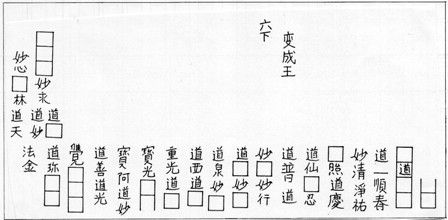 変成王
六下
道
道一順春
妙清淨祐
□照道慶
道仙□忍
道普道
妙□妙行
道□妙□
道泉妙□
道西道□
重光道□
寶光
寶何道妙
道善道光
覺
道弥
法金
妙求道
道妙
妙心□林
道天